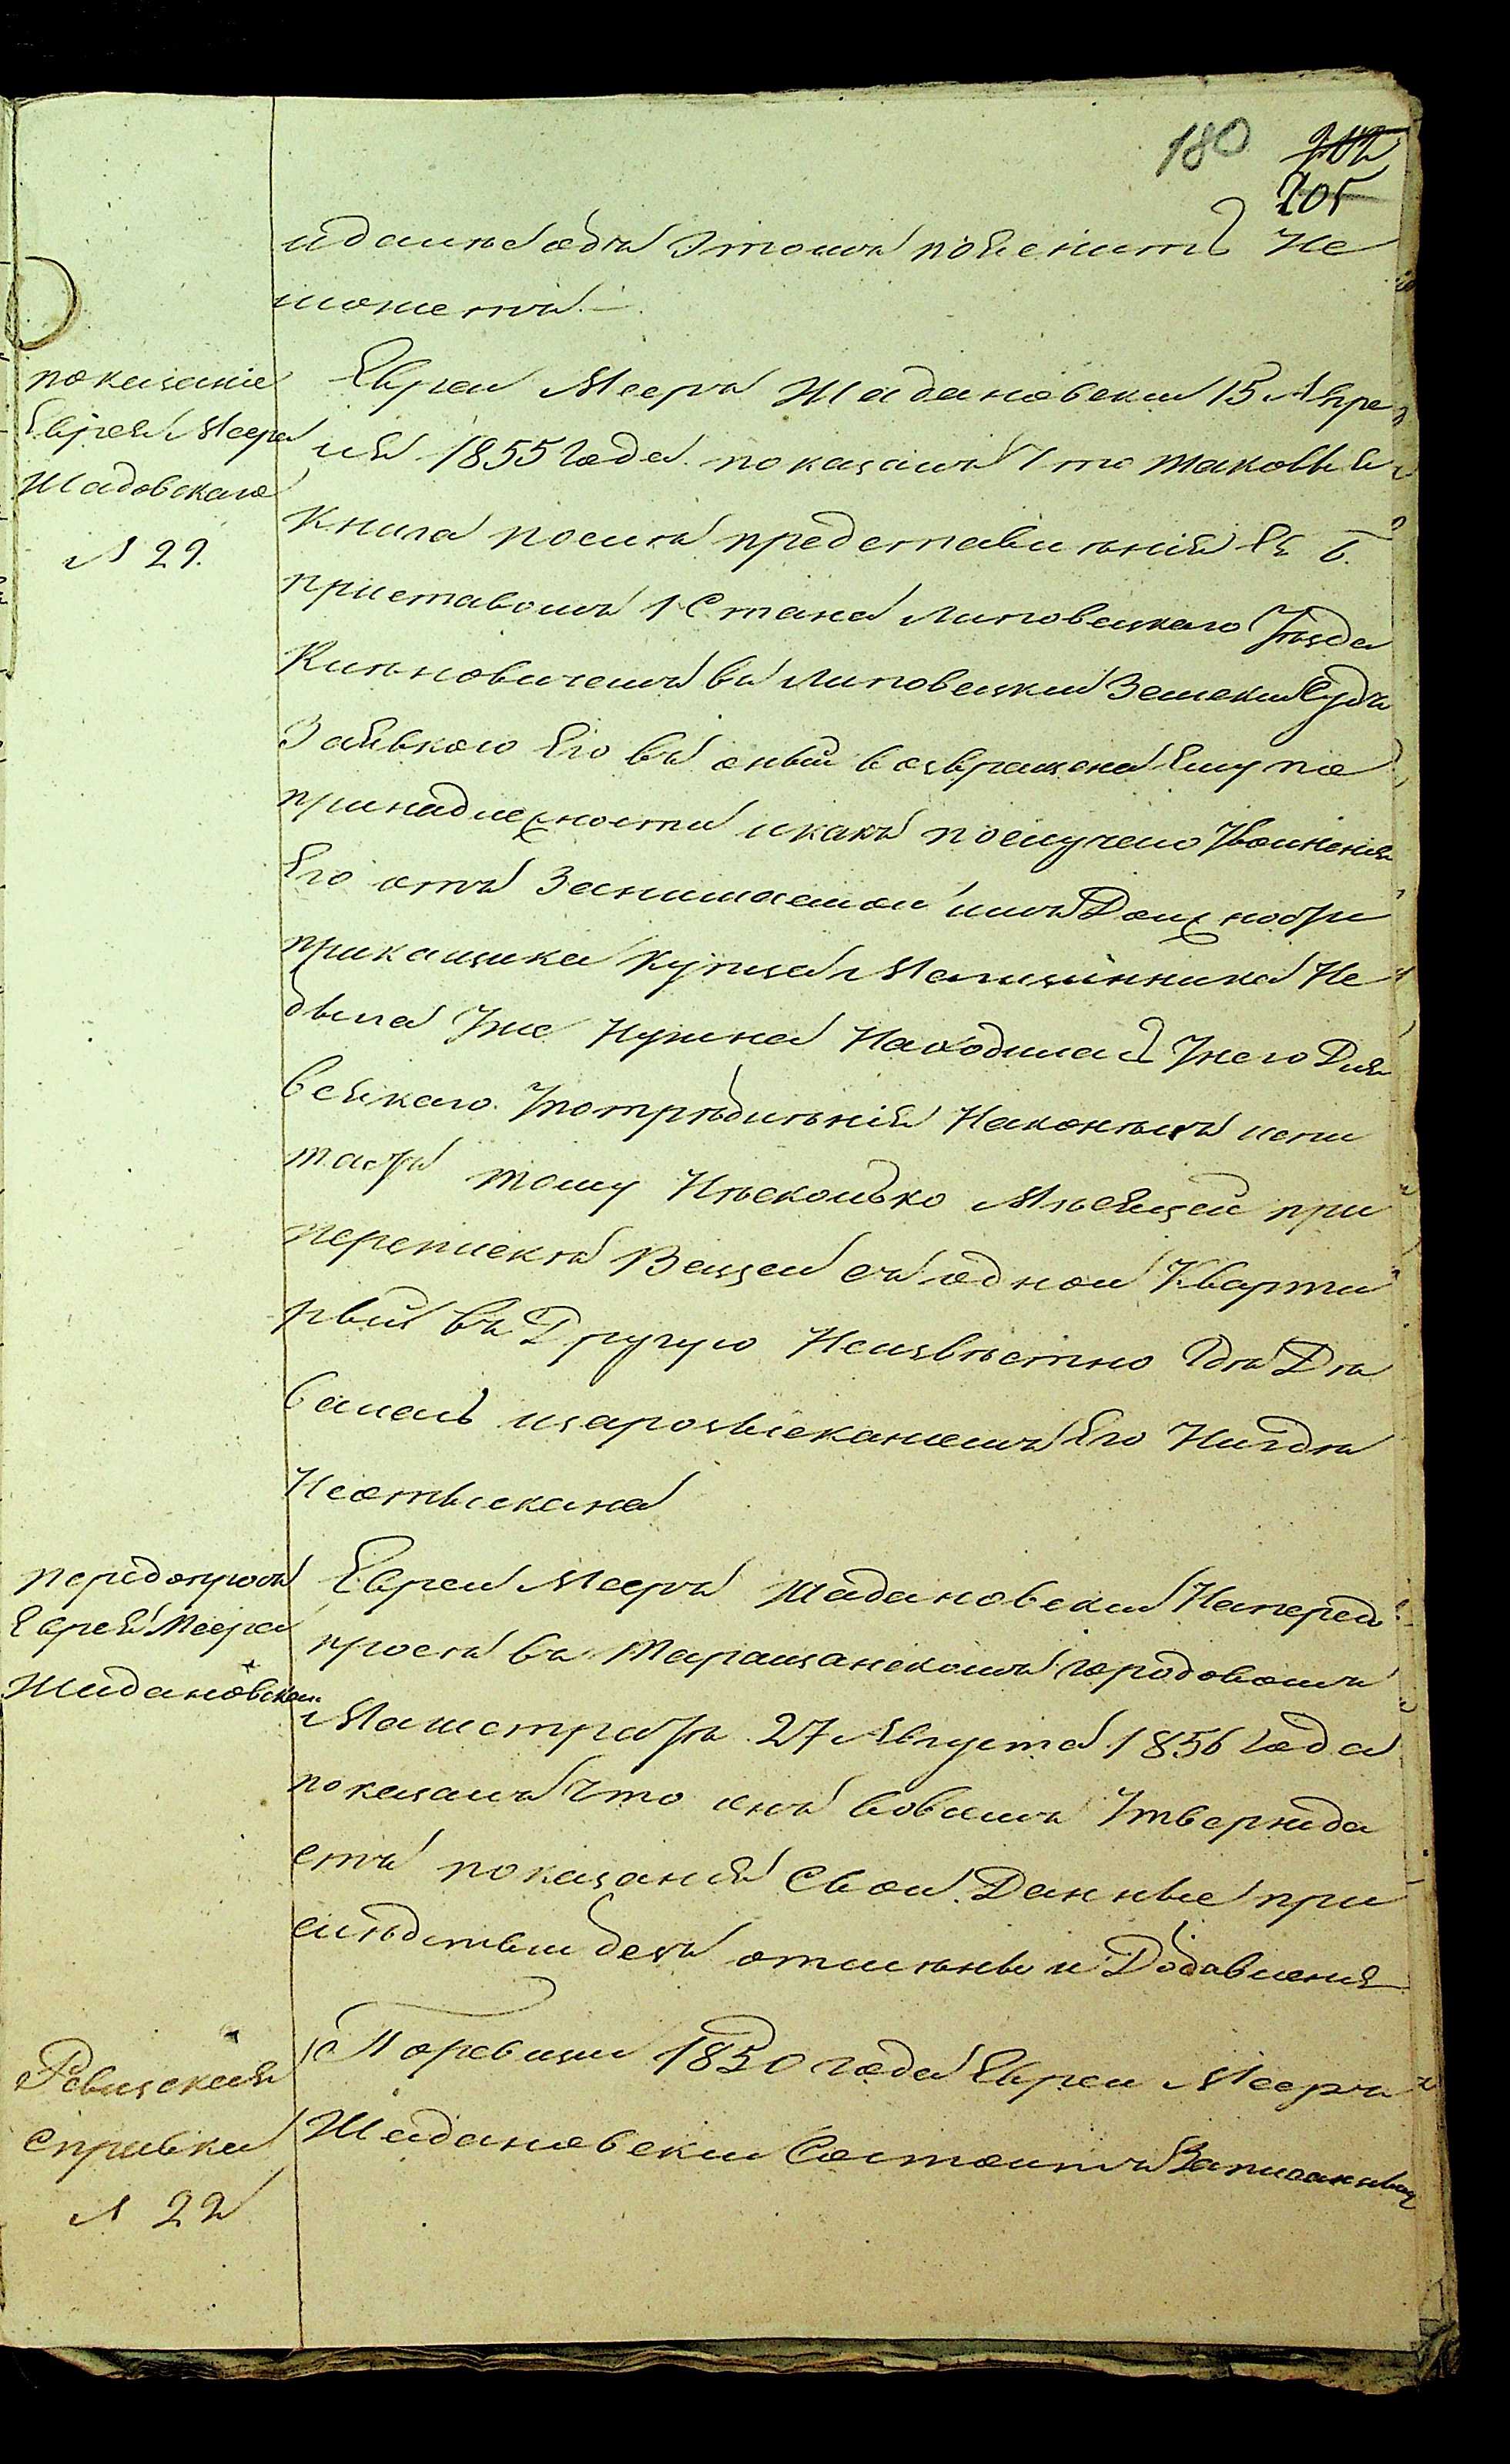 180 202
205
и далее объ этомъ пояснить Не
можетъ.—
показаніе
Еврея Меера
Шадовскаго
№ 29.
Еврей Мееръ Шадановскій 15 Апре
ля 1855 года показалъ Что таковыя
книга послѣ представленія Ея б.
приставомъ 1 Стана Липовецкаго Уѣзда
въ Липовецкій Земскій Судъ
Заявкою Его въ оный возвращена Ему по
принадлежности и какъ по случаю Увольненія
Его отъ Занимаемой имъ Должности
прикащика купца Не
была Уже Нужна Находилась Унего Для
всякаго Употрѣбленія Наконецъ
тому Нѣсколько Мѣсяцей при
Вещей съ одной Кварти
ры въ Другую Неизвѣстно Гдѣ Дѣ
валась изарозысканіемъ Его Нигдѣ
Неотыскана
передопросъ
Еврея Меера
Шадановскаго
Еврей Мееръ Шадановскій Напередо
просѣ въ Таращанскомъ городовомъ
Магистратѣ 27 Августа 1856 года
показалъ Что онъ вовсемъ Утвержда
етъ показанія Свои Данные при
слѣдствіи безъ отмѣны и Добавленія
Ревизскія
справки
№ 22
По ревизіи 1850 года Еврей Мееръ
Шадановскій Состоитъ Записаннымъ